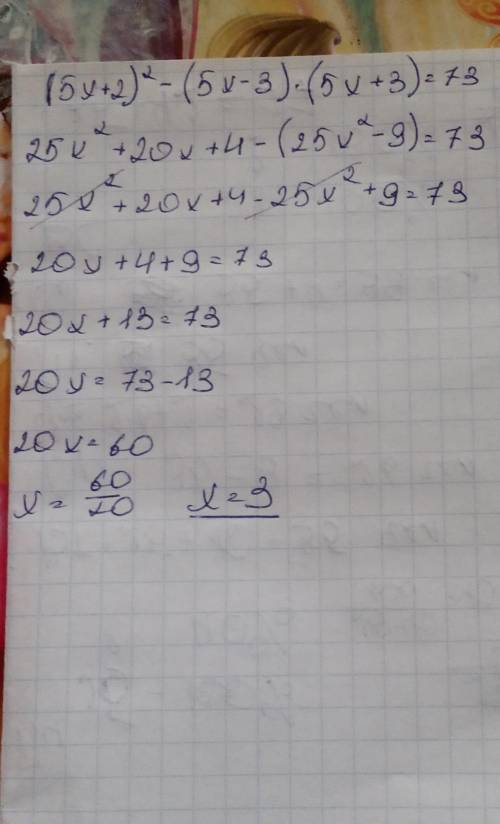 (5x+2)² - (5x-3)·(5x+3)=73
25x²+20x+4-(25x²-9)=73
25x²+20x+4-25x²+9=73
20x+4+9=73
20x+13=73
20x=73-13
20x=60
x=60/20 x=3